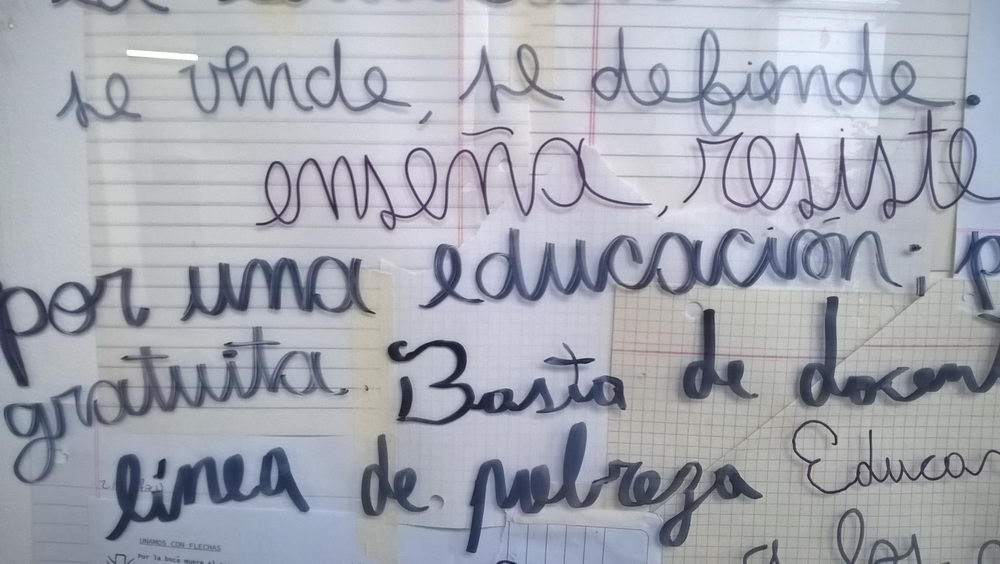 se vende, se defiende.
enseña, resiste
por una educación; p
gratuita. Basta de docen
línea de pobreza Educar
a los
UNAMOS CON FLECHAS
Por la boca muere el